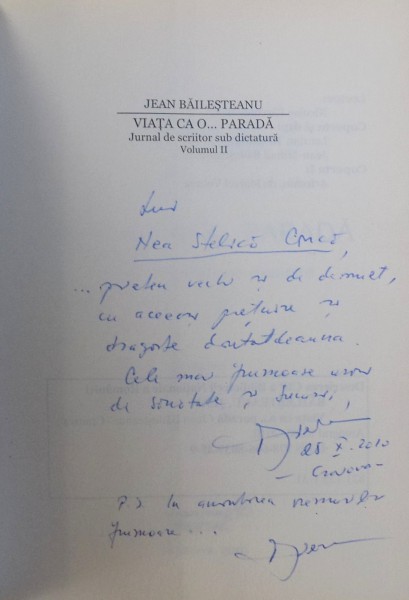 JEAN BĂILEȘTEANU
VIAȚA CA O... PARADĂ
Jurnal de scriitor sub dictatură
Volumul II
Lui
Nea Stelică
... prieten vechi și de demult,
cu aceeași prețuire și
dragoste dintotdeauna.
Cele mai frumoase urări
de sănătate și succese,
25 X. 2010
– Craiova –
P.S. În amintirea vremurilor
frumoase...